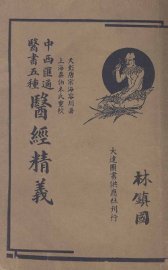 中西匯通
醫書五種
醫經精義
天彭唐宗海容川著
上海秦伯未氏重校
大達圖書供應社刊行
林鎮國